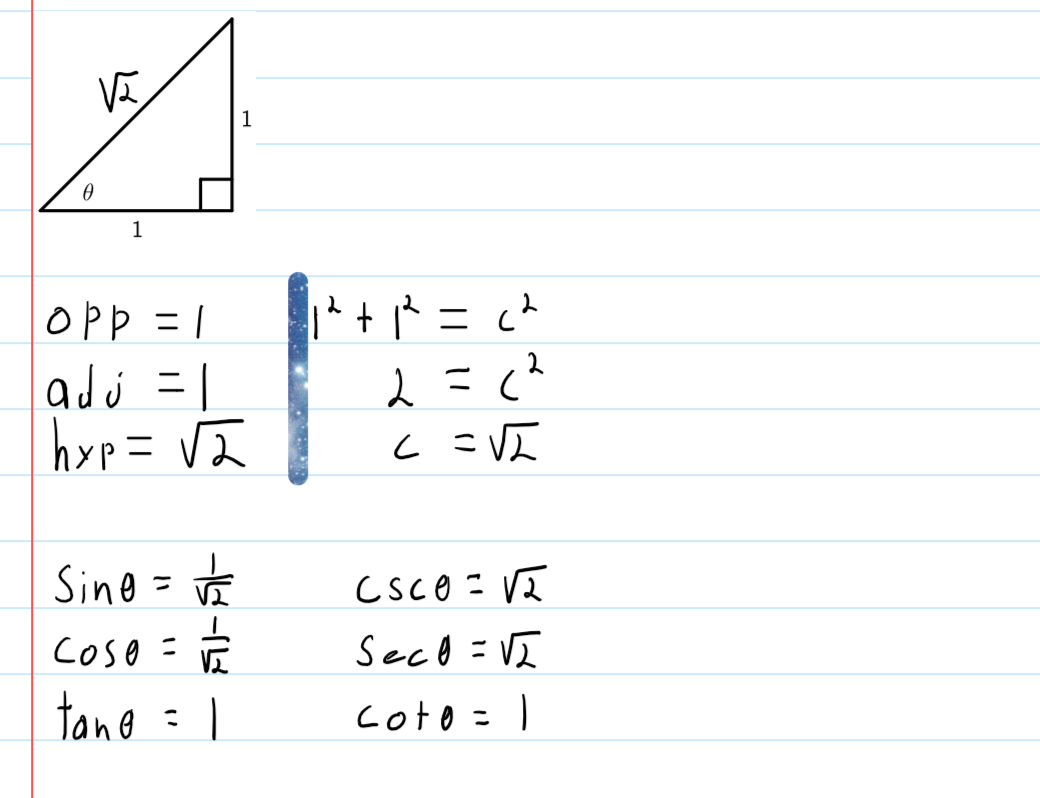 √2
1
θ
1
opp = 1
adj = 1
hyp = √2
1² + 1² = c²
2 = c²
c = √2
sinθ = 1/√2
cosθ = 1/√2
tanθ = 1
cscθ = √2
secθ = √2
cotθ = 1